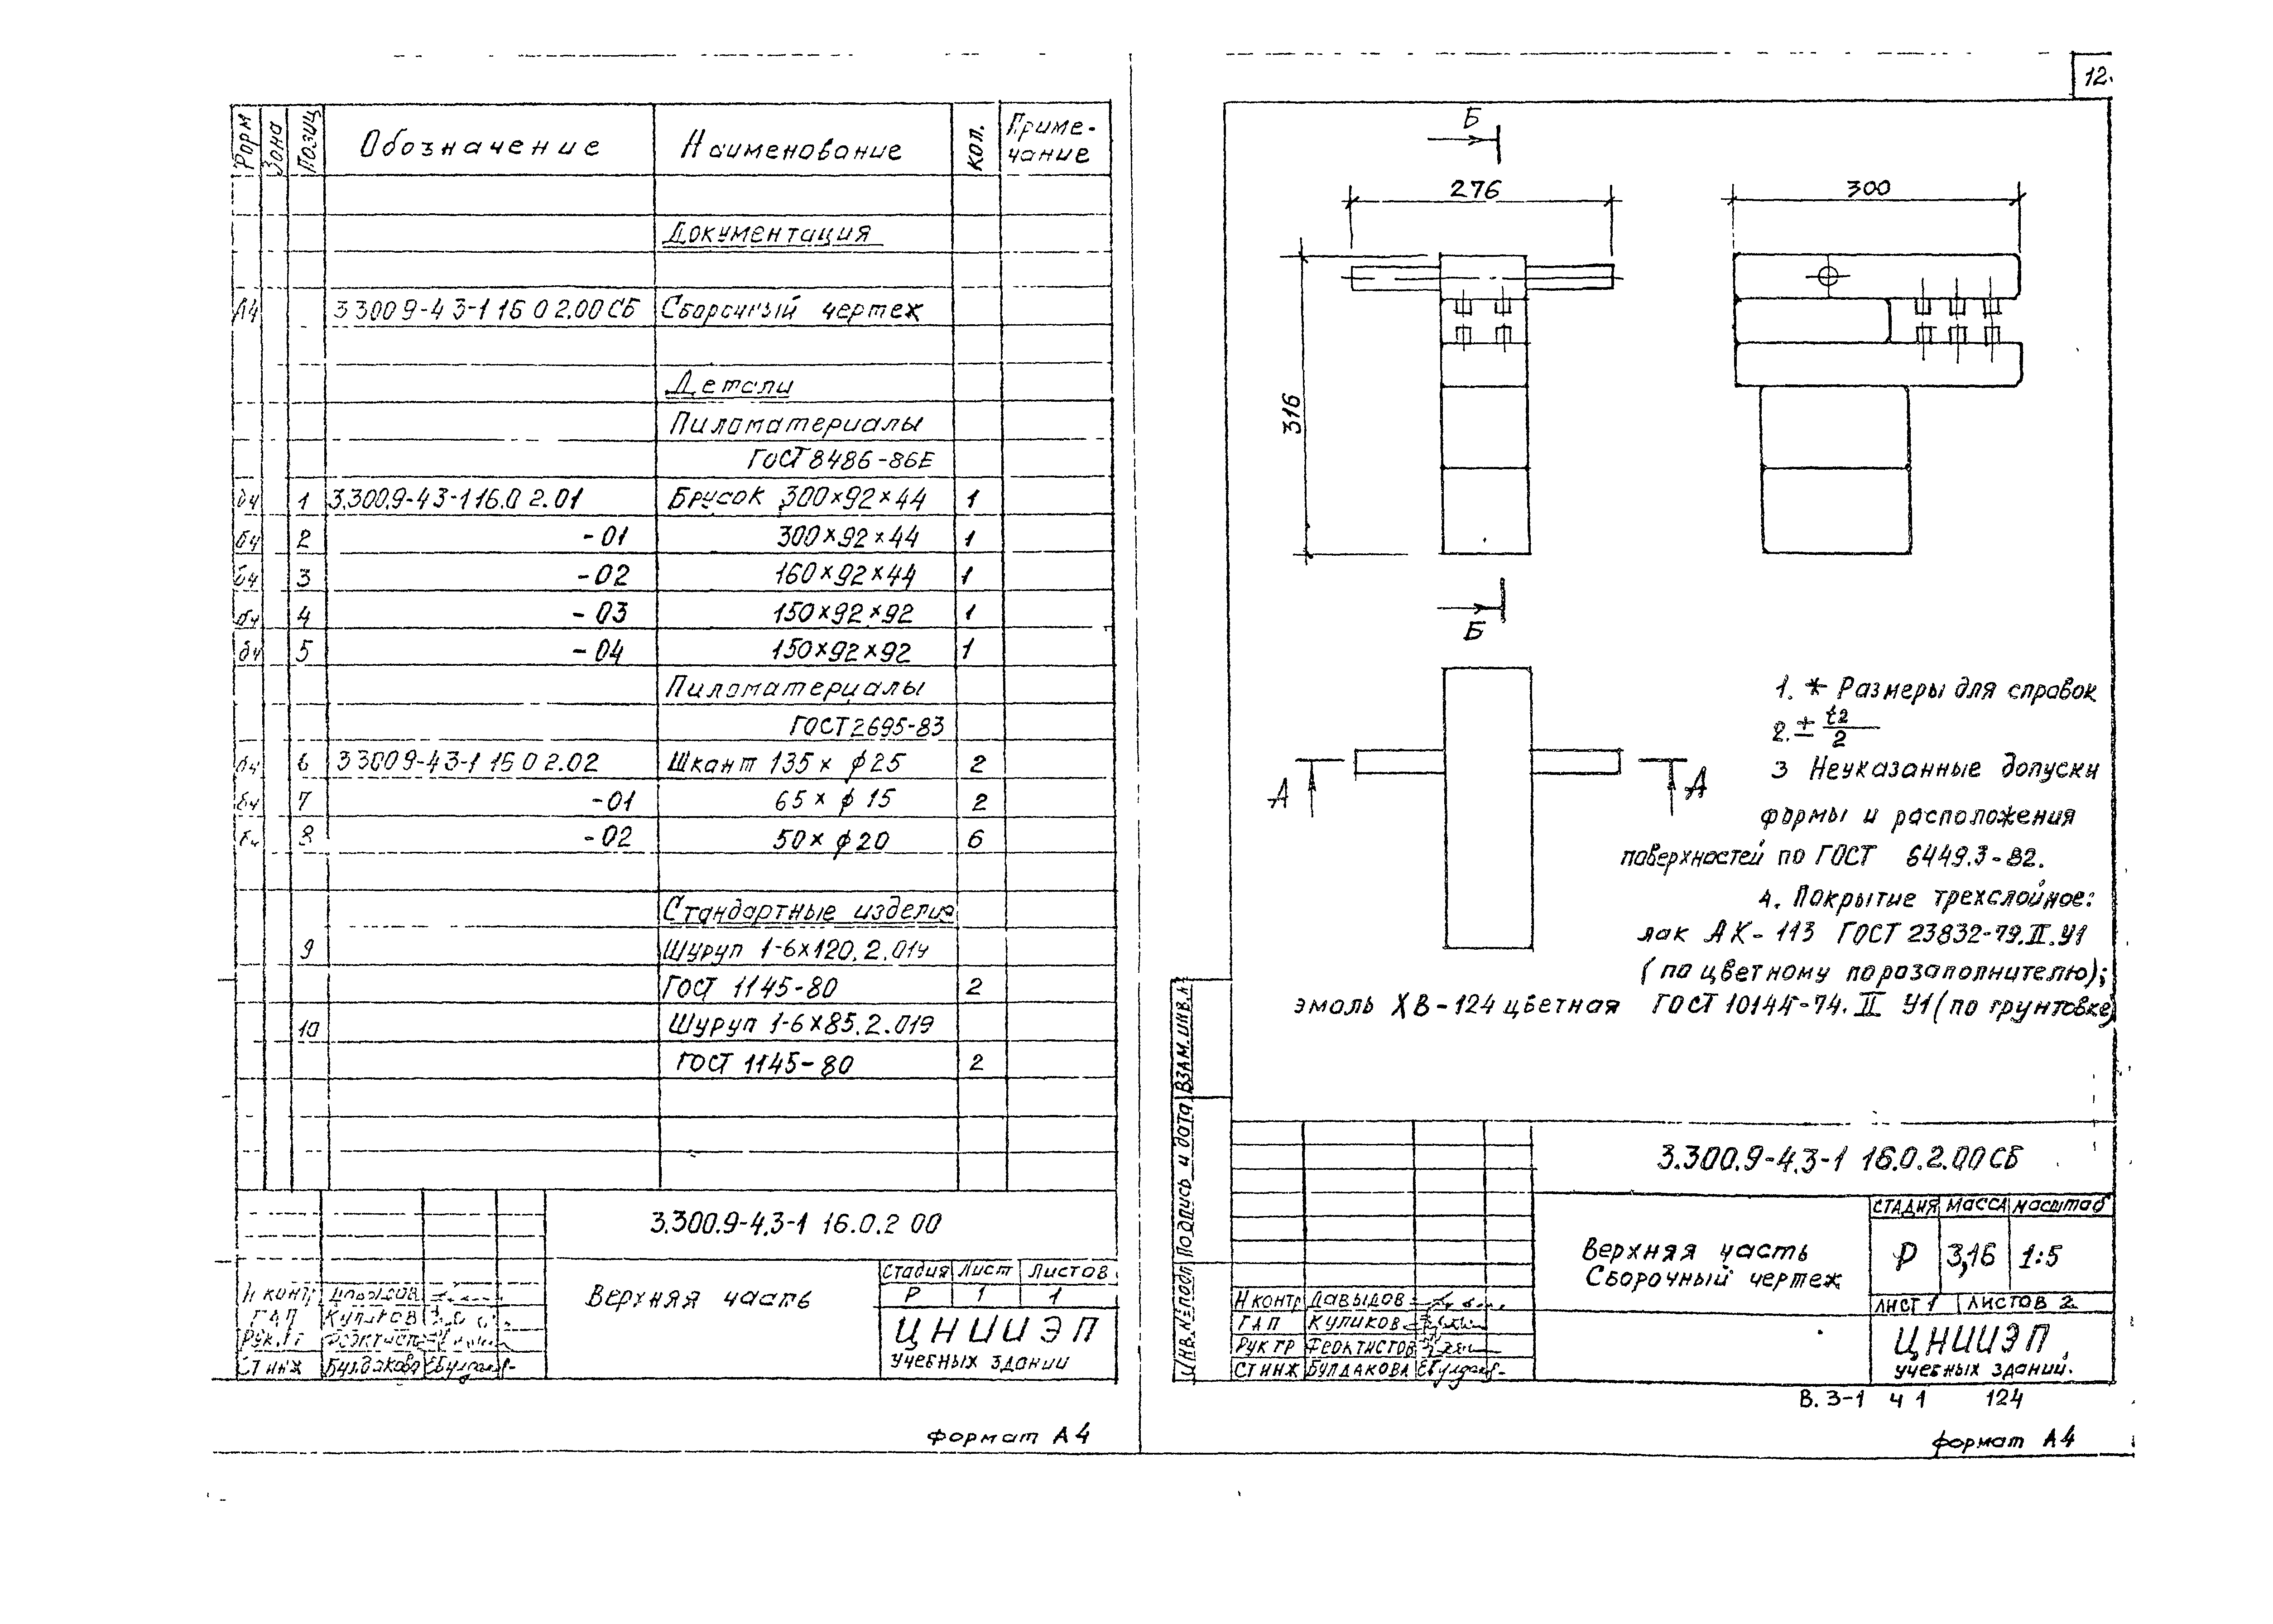 Форм Зона Позиц Обозначение Наименование Кол. Приме-
чание
Документация
А4 3 300 9-4 3-1 16 0 2.00 СБ Сборочный чертеж
Детали
Пиломатериалы
ГОСТ 8486-86Е
бч 1 3.300.9-4 3-1 16.0 2.01 Брусок 300×92×44 1
бч 2 -01 300×92×44 1
бч 3 -02 160×92×44 1
бч 4 -03 150×92×92 1
бч 5 -04 150×92×92 1
Пиломатериалы
ГОСТ 2695-83
бч 6 3 300 9-4 3-1 16 0 2.02 Шкант 135× ϕ25 2
бч 7 -01 65× ϕ 15 2
бч 8 -02 50× ϕ20 6
Стандартные изделия
9 Шуруп 1-6×120.2.019
ГОСТ 1145-80 2
10 Шуруп 1-6×85.2.019
ГОСТ 1145-80 2
3.300.9-4.3-1 16.0.2 00
Верхняя часть
Стадия Лист Листов
Р 1 1
Н контр Давыдов
ГАП Куликов
Рук.гр Феоктистов
Ст инж Булдакова
ЦНИИЭП
учебных здании
формат А4
12.
Б
276
300
316
Б
А А
1. * Размеры для справок
2. ± t2/2
3 Неуказанные допуски
формы и расположения
поверхностей по ГОСТ 6449.3-82.
4. Покрытие трехслойное:
лак АК-113 ГОСТ 23832-79.II.У1
(по цветному порозаполнителю);
эмаль ХВ-124 цветная ГОСТ 10144-74.II У1 (по грунтовке)
Инв.№подл Подпись и дата Взам.инв.№
3.300.9-4.3-1 16.0.2.00 СБ
Верхняя часть
Сборочный чертеж
Стадия Масса Масштаб
Р 3,16 1:5
Лист 1 Листов 2
Н контр Давыдов
ГАП Куликов
Рук гр Феоктистов
Ст инж Булдакова
ЦНИИЭП
учебных зданий.
В.3-1 ч 1 124
формат А4